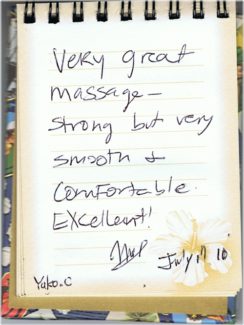 Very great
massage –
strong but very
smooth &
comfortable.
EXcellent!
July 17 10
Yuko.C